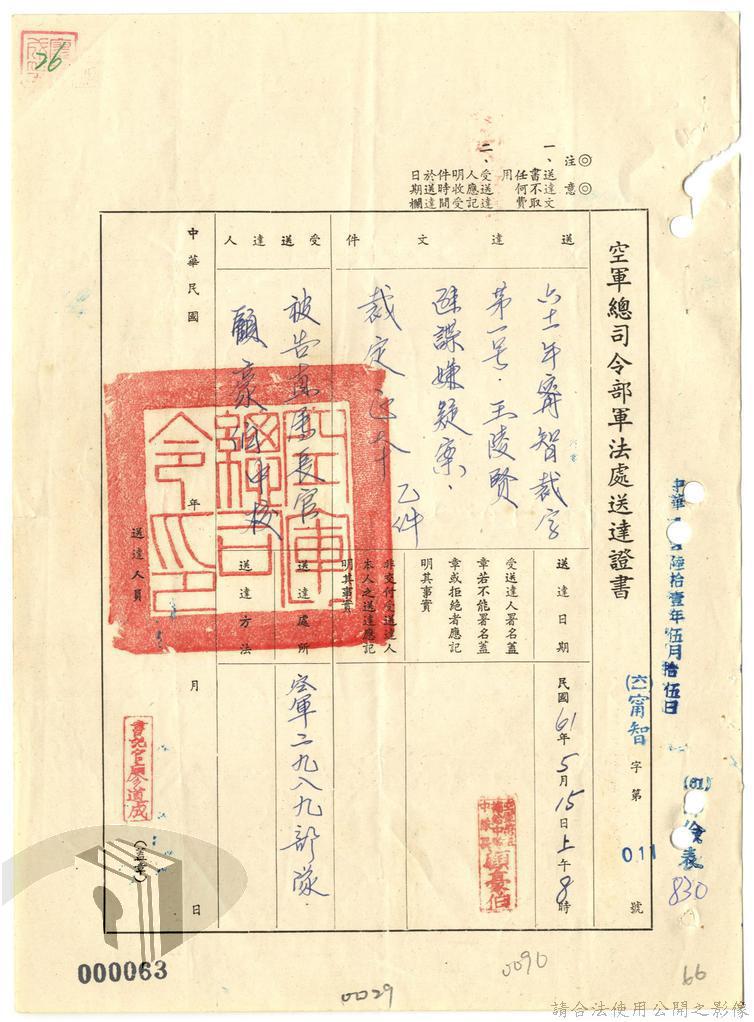 26
◎注意◎
一、送達文書不取任何費用
二、受送達人應記明收受件時間於送達日期欄
空軍總司令部軍法處送達證書
中華民國陸拾壹年伍月拾伍日
(六一)甯智字第011號
830
送達文件
六十一年甯智裁字
第一号,王陵賢
諜嫌疑案,
裁定正本乙件
受送達人
被告直屬長官
顧豪伯中校
送達日期
民國61年5月15日上午8時
受送達人署名蓋章若不能署名蓋章或拒絕者應記明其事實
顧豪伯
非交付受送達人本人之送達應記明其事實
送達處所
空軍二九八九部隊
送達方法
空軍總司令印
中華民國 年 月 日
送達人員
書記官廖道成
(蓋章)
000063
0029
0090
66
請合法使用公開之影像